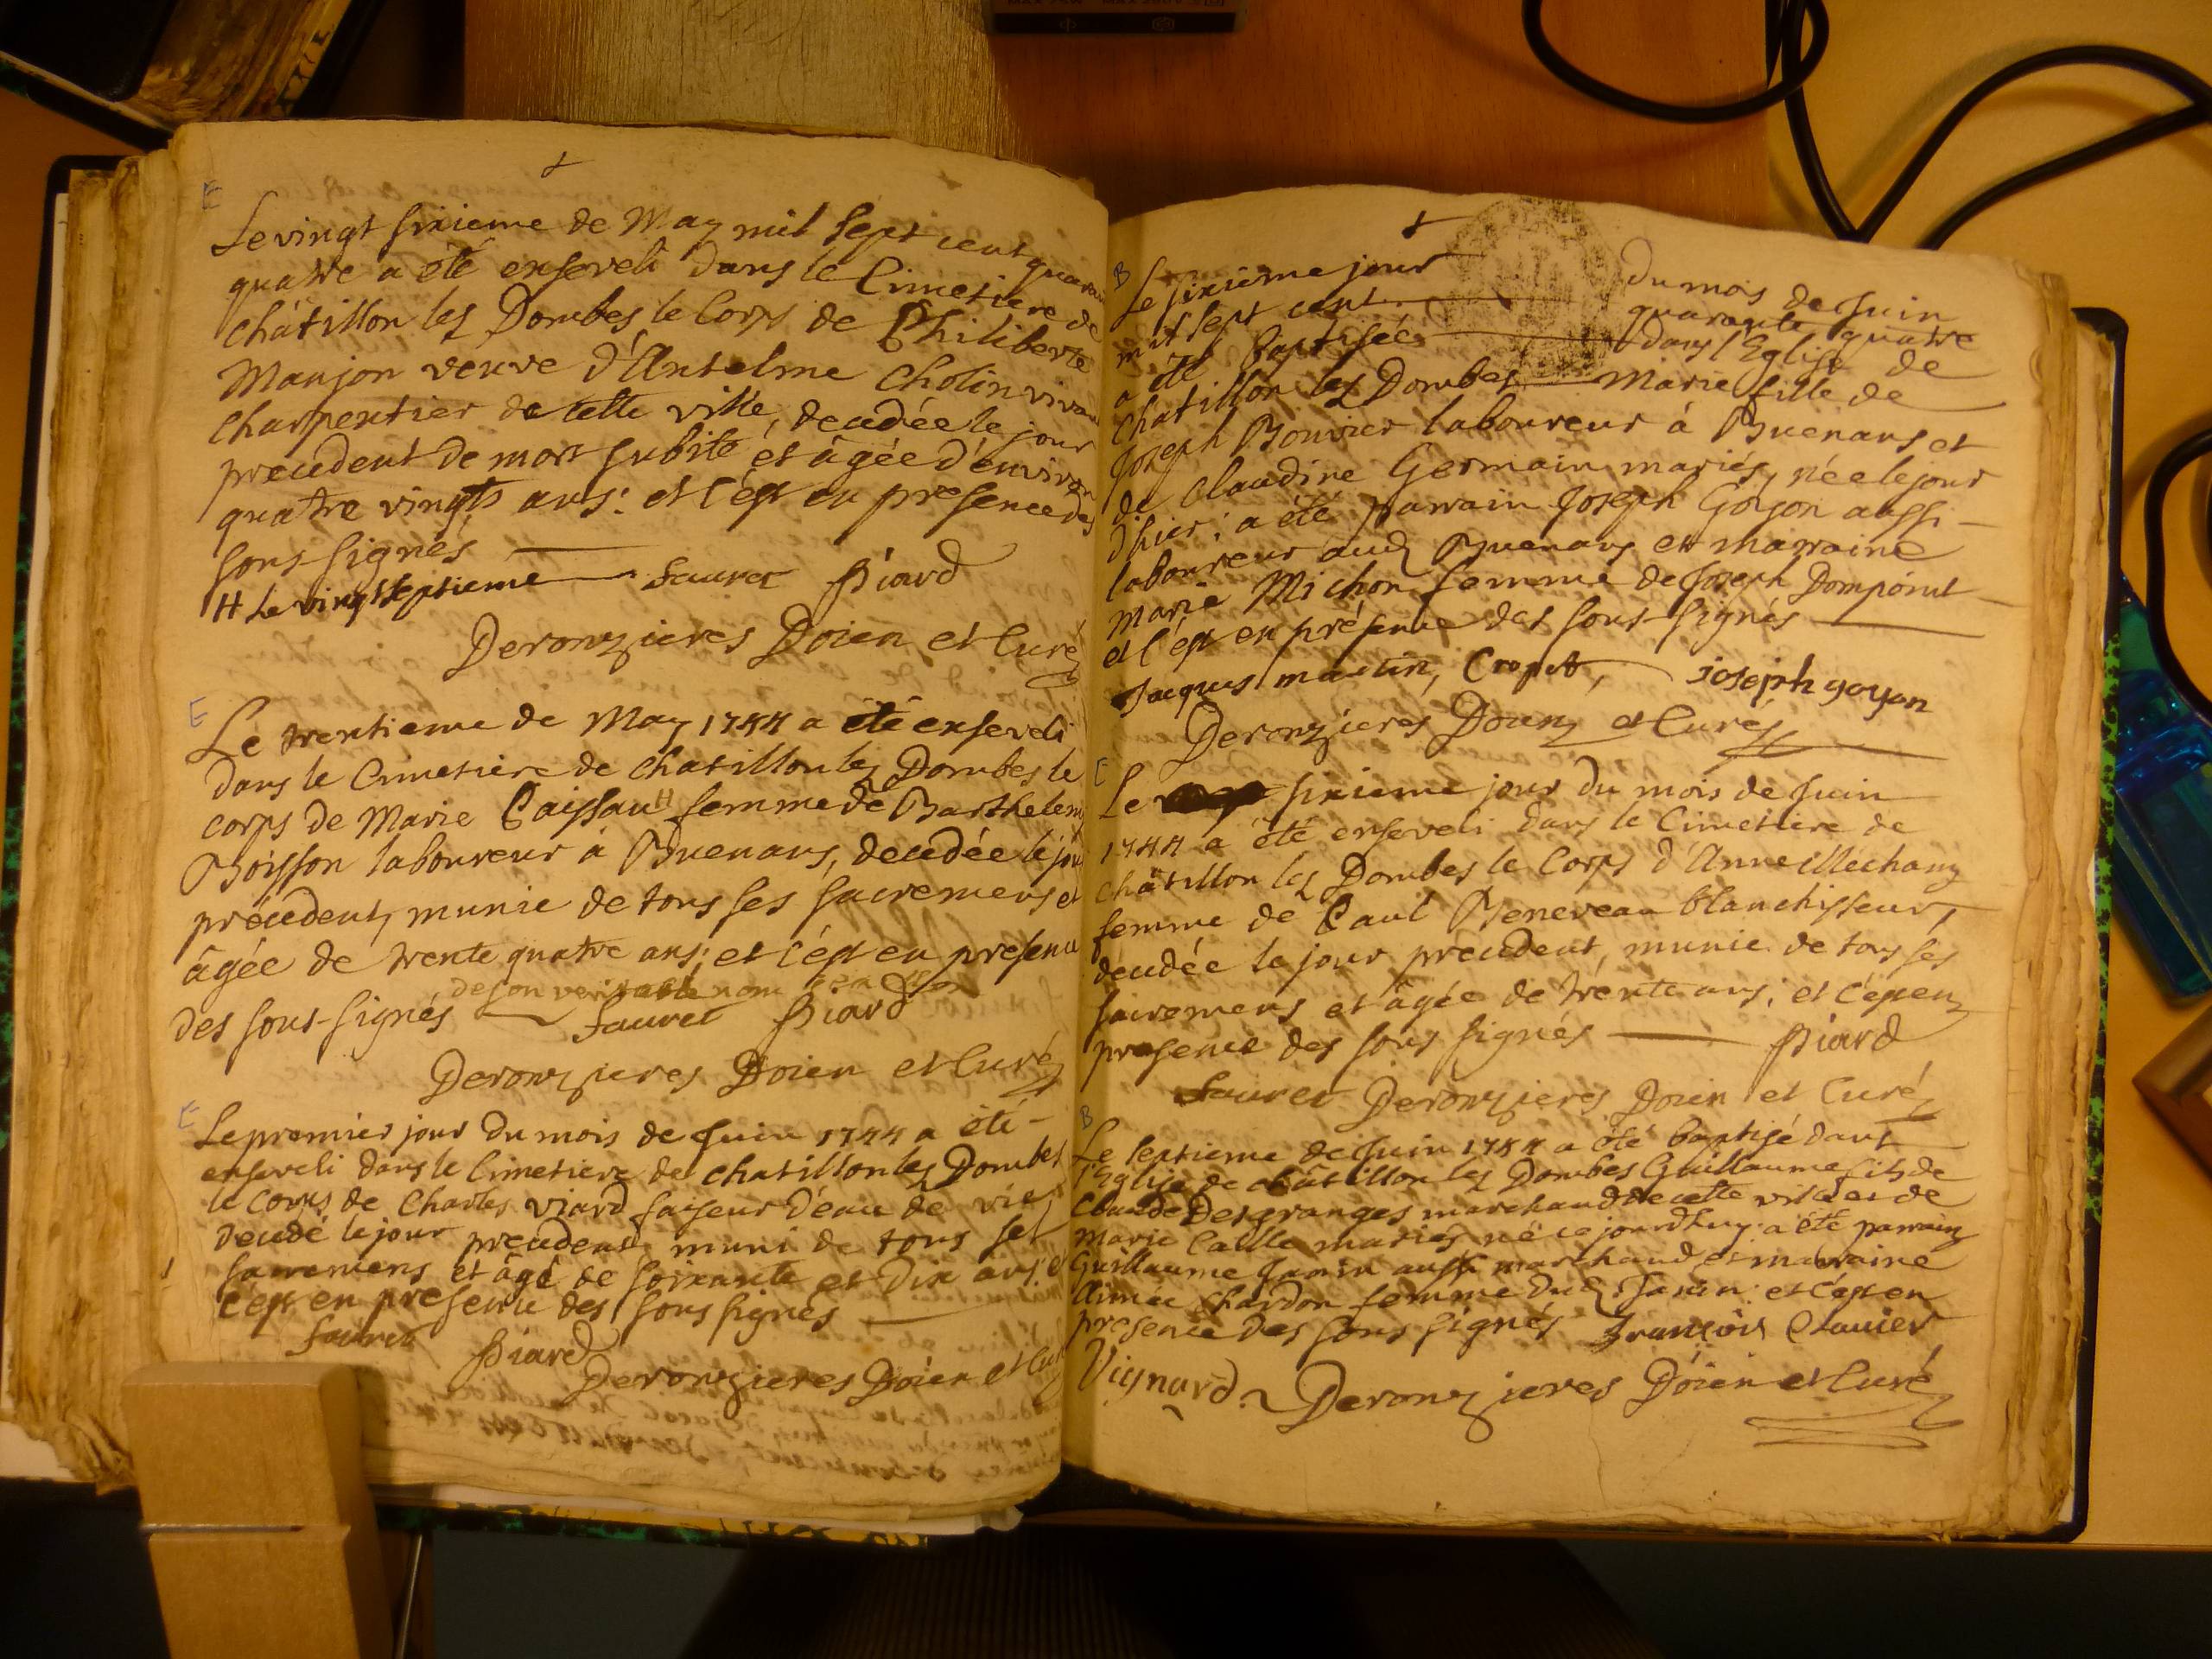 E
Le vingt sixieme de May mil sept cent quarante
quatre a été enseveli dans le Cimetiere de
châtillon les Dombes le Corps de Philiberte
Manjon veuve d'Antelme Cholin vivant
charpentier de cette ville, decedée le jour
precedent de mort subite et âgée d'environ
quatre vingts ans: et c'est en presence des
sous-signés
H Le vingt septieme Sauret Piard
Deronzieres Doien et Curé
E
Le trentieme de May 1744 a été enseveli
dans le Cimetiere de chatillon les Dombes le
corps de Marie H femme de Barthelemy
Boisson laboureur à Buenans, decedée le jour
précedent, munie de tous ses sacremens et
âgée de trente quatre ans; et c'est en presence
de son veritable nom
des sous-signés Sauret Piard
Deronzieres Doien et Curé
E
Le premier jour du mois de Juin 1744 a été
enseveli dans le Cimetiere de chatillon les Dombes
le corps de Charles Viard faiseur d'eau de vie
decedé le jour precedent, muni de tous ses
sacremens et âgé de soixante et dix ans: et
c'est en presence des sous signés
Sauret Piard
Deronzieres Doien et Curé
B
Le sixieme jour du mois de Juin
mil sept cent quarante quatre
a été baptisée dans l'Eglise de
chatillon les Dombes Marie fille de
Joseph Bouvier laboureur à Buenans et
de Claudine Germain mariés, née le jour
d'hier: a été parrain Joseph Goyon aussi
laboureur aud Buenans et marraine
marie Michon femme de Joseph
et c'est en présence des sous-signés
Jacques martin, Cropet, joseph goyon
Deronzieres Doien et Curé
E
Le sixieme jour du mois de Juin
1744 a été enseveli dans le Cimetiere de
châtillon les Dombes le Corps d'Anne
femme de Paul Beneveau blanchisseur,
decedée le jour precedent, munie de tous ses
sacremens et âgée de trente ans; et c'est en
presence des sous signés Piard
Sauret Deronzieres Doien et Curé
B
Le septieme de Juin 1744 a été baptisé dans
l'Eglise de châtillon les Dombes Guillaume fils de
Claude Desgranges marchand de cette ville et de
marie Caille mariés né ce jourdhuy: a été parrain
Guillaume Janin aussi marchand et marraine
Aimée Chardon femme dud Janin: et c'est en
presence des sous signés François Clavier
Vignard Deronzieres Doien et Curé